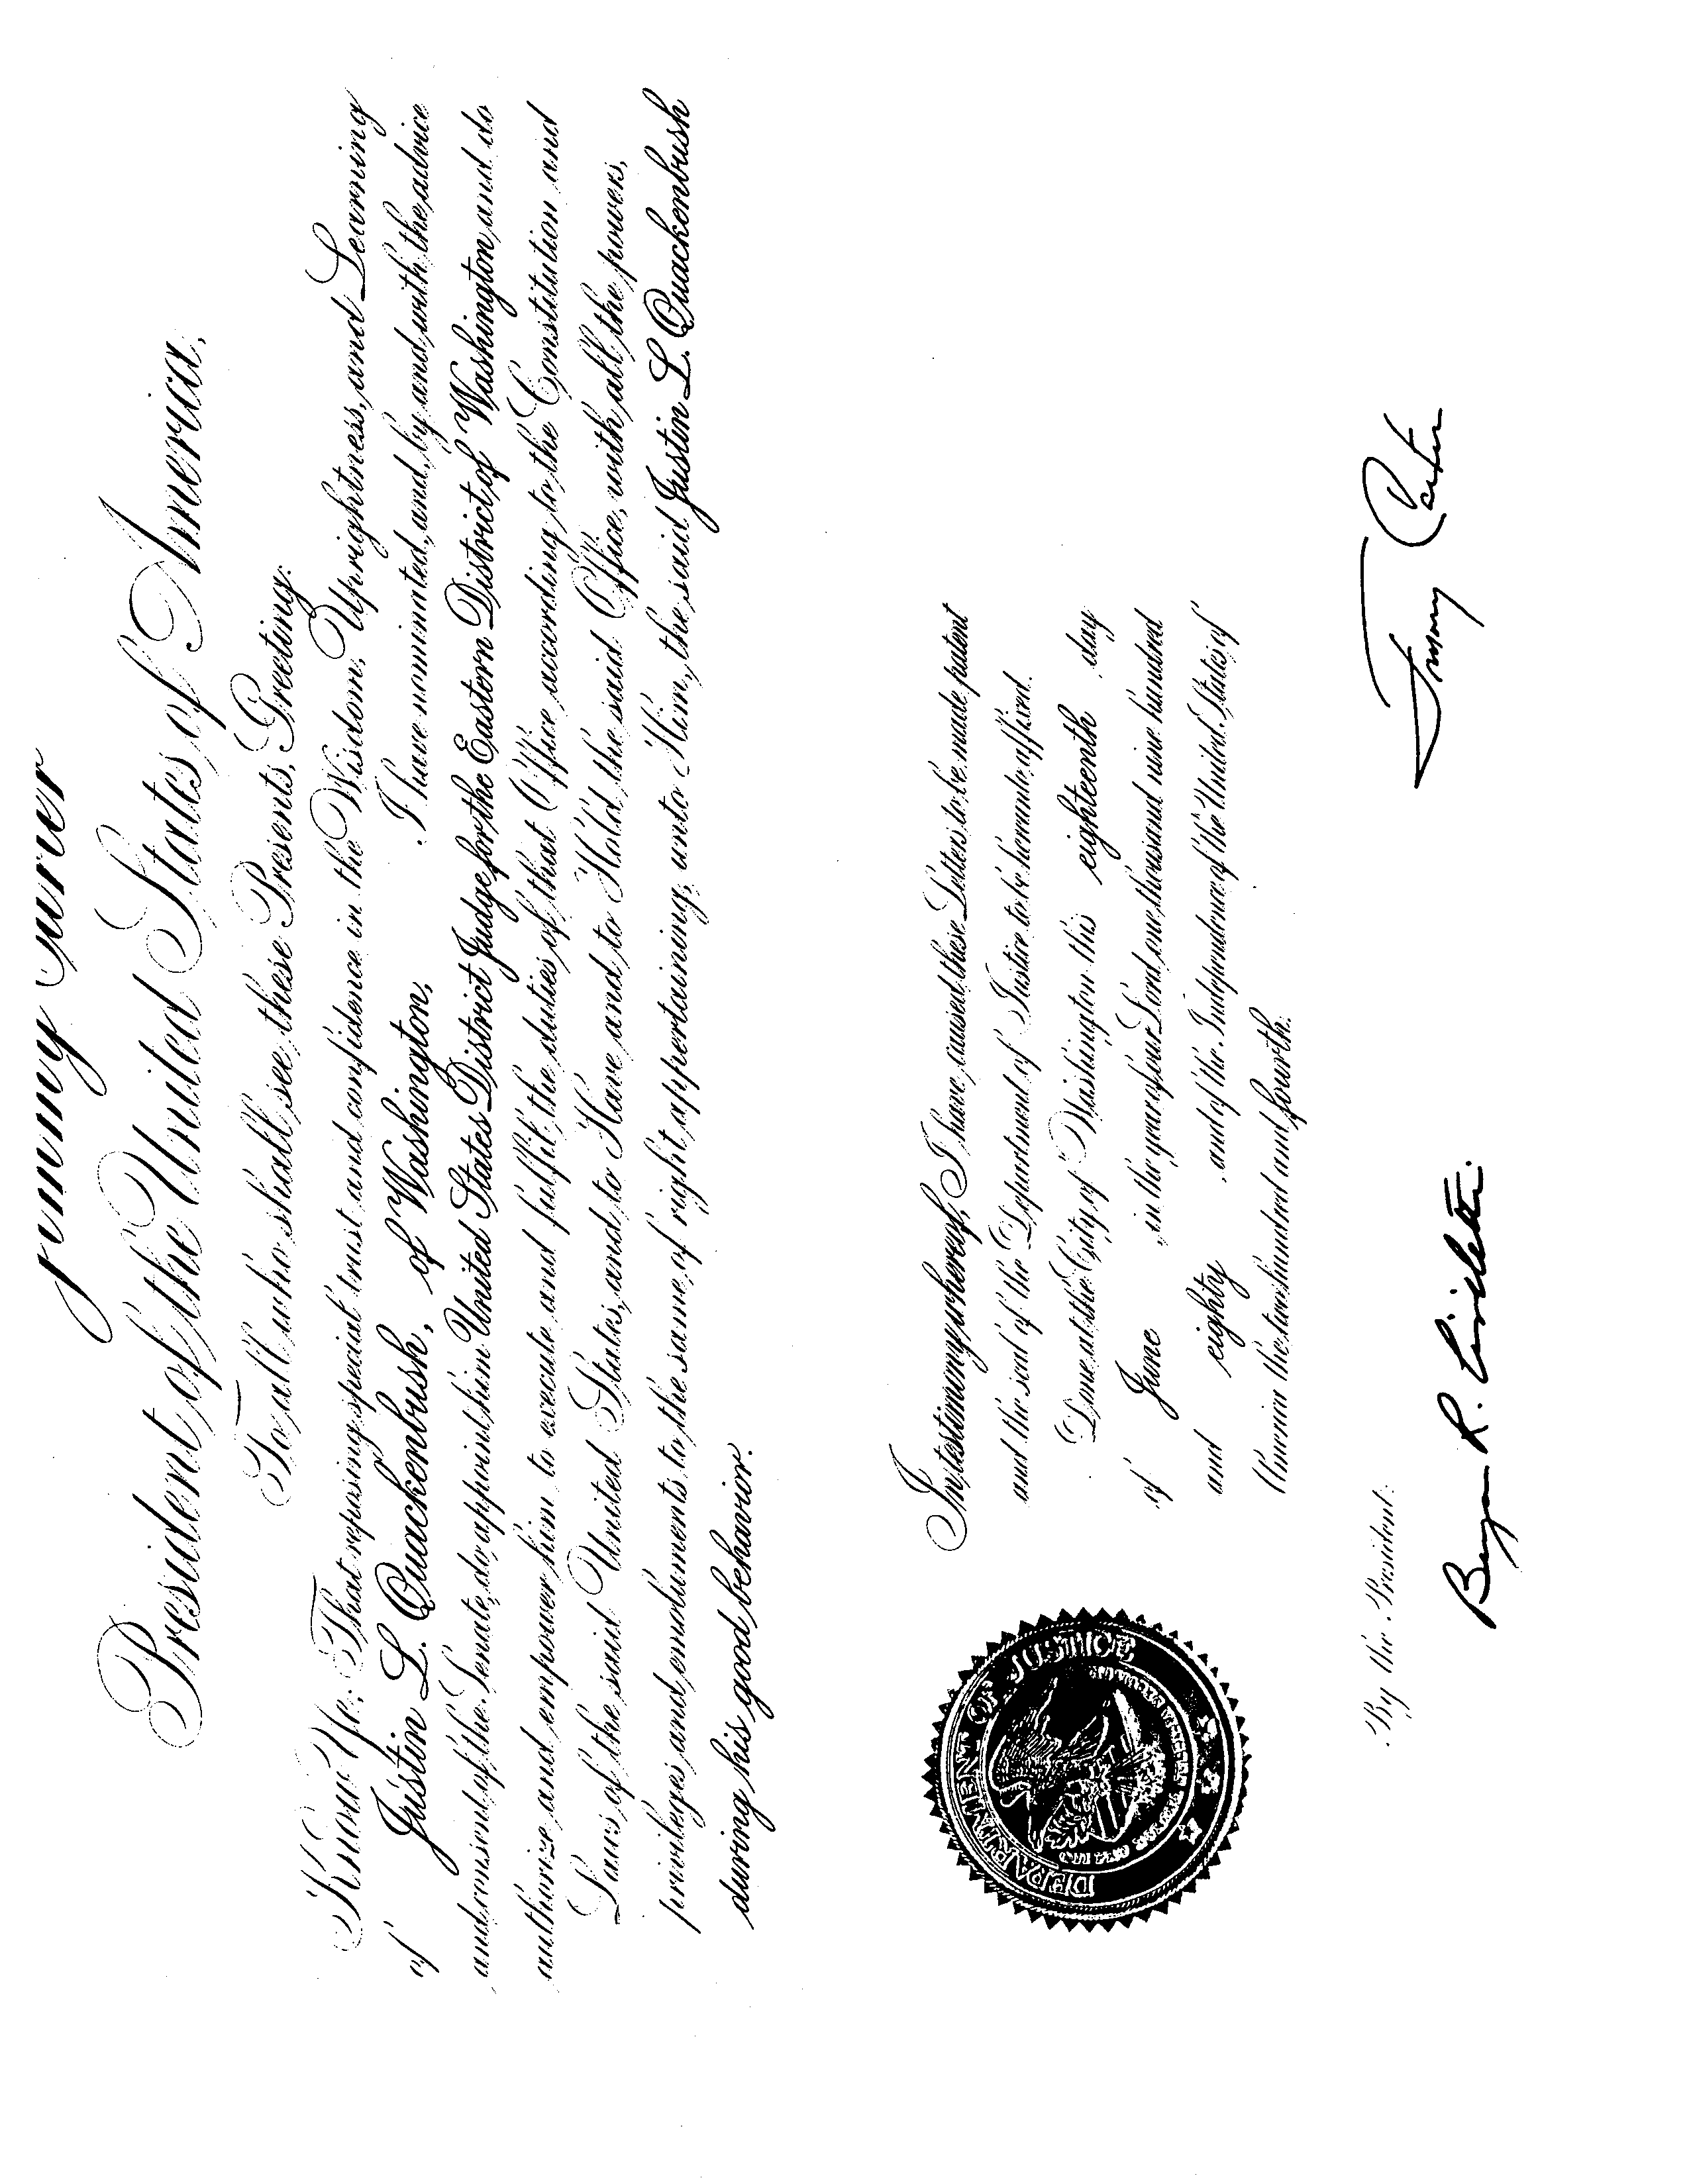 Jimmy Carter
President of the United States of America,
To all who shall see these Presents, Greeting:
Know Ye; That reposing special trust and confidence in the Wisdom, Uprightness, and Learning
of Justin L. Quackenbush, of Washington, I have nominated, and, by and with the advice
and consent of the Senate, do appoint him United States District Judge for the Eastern District of Washington and do
authorize and empower him to execute and fulfil the duties of that Office according to the Constitution and
Laws of the said United States, and to Have and to Hold the said Office, with all the powers,
privileges and emoluments to the same of right appertaining, unto Him, the said Justin L. Quackenbush
during his good behavior.
In testimony whereof, I have caused these Letters to be made patent
and the seal of the Department of Justice to be hereunto affixed.
Done at the City of Washington this eighteenth day
of June in the year of our Lord one thousand nine hundred
and eighty and of the Independence of the United States of
America the two hundred and fourth.
DEPARTMENT OF JUSTICE
Jimmy Carter
By the President:
Benjamin R. Civiletti